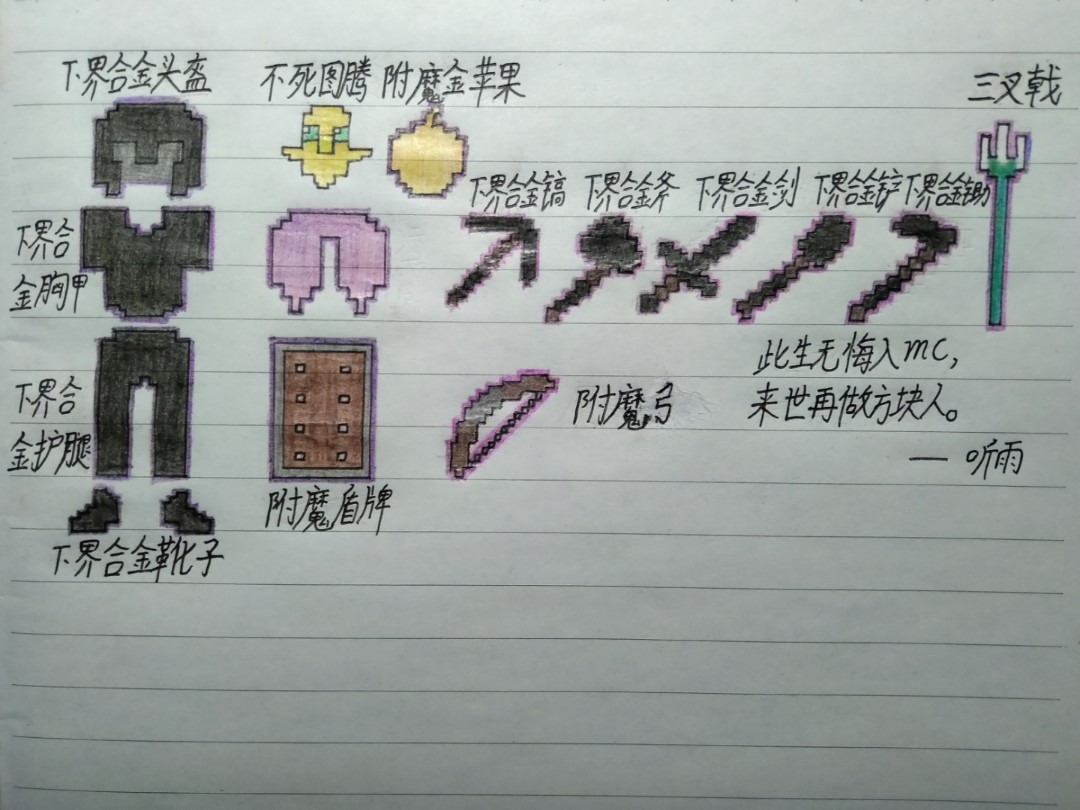 下界合金头盔
不死图腾
附魔金苹果
三叉戟
下界合金镐
下界合金斧
下界合金剑
下界合金铲
下界合金锄
下界合
金胸甲
下界合
金护腿
附魔弓
此生无悔入mc,
来世再做方块人。
— 听雨
附魔盾牌
下界合金靴子